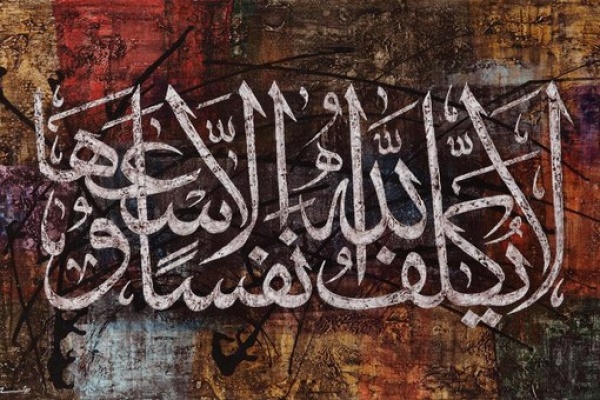 لَا يُكَلِّفُ اللَّهُ نَفْسًا إِلَّا وُسْعَهَا